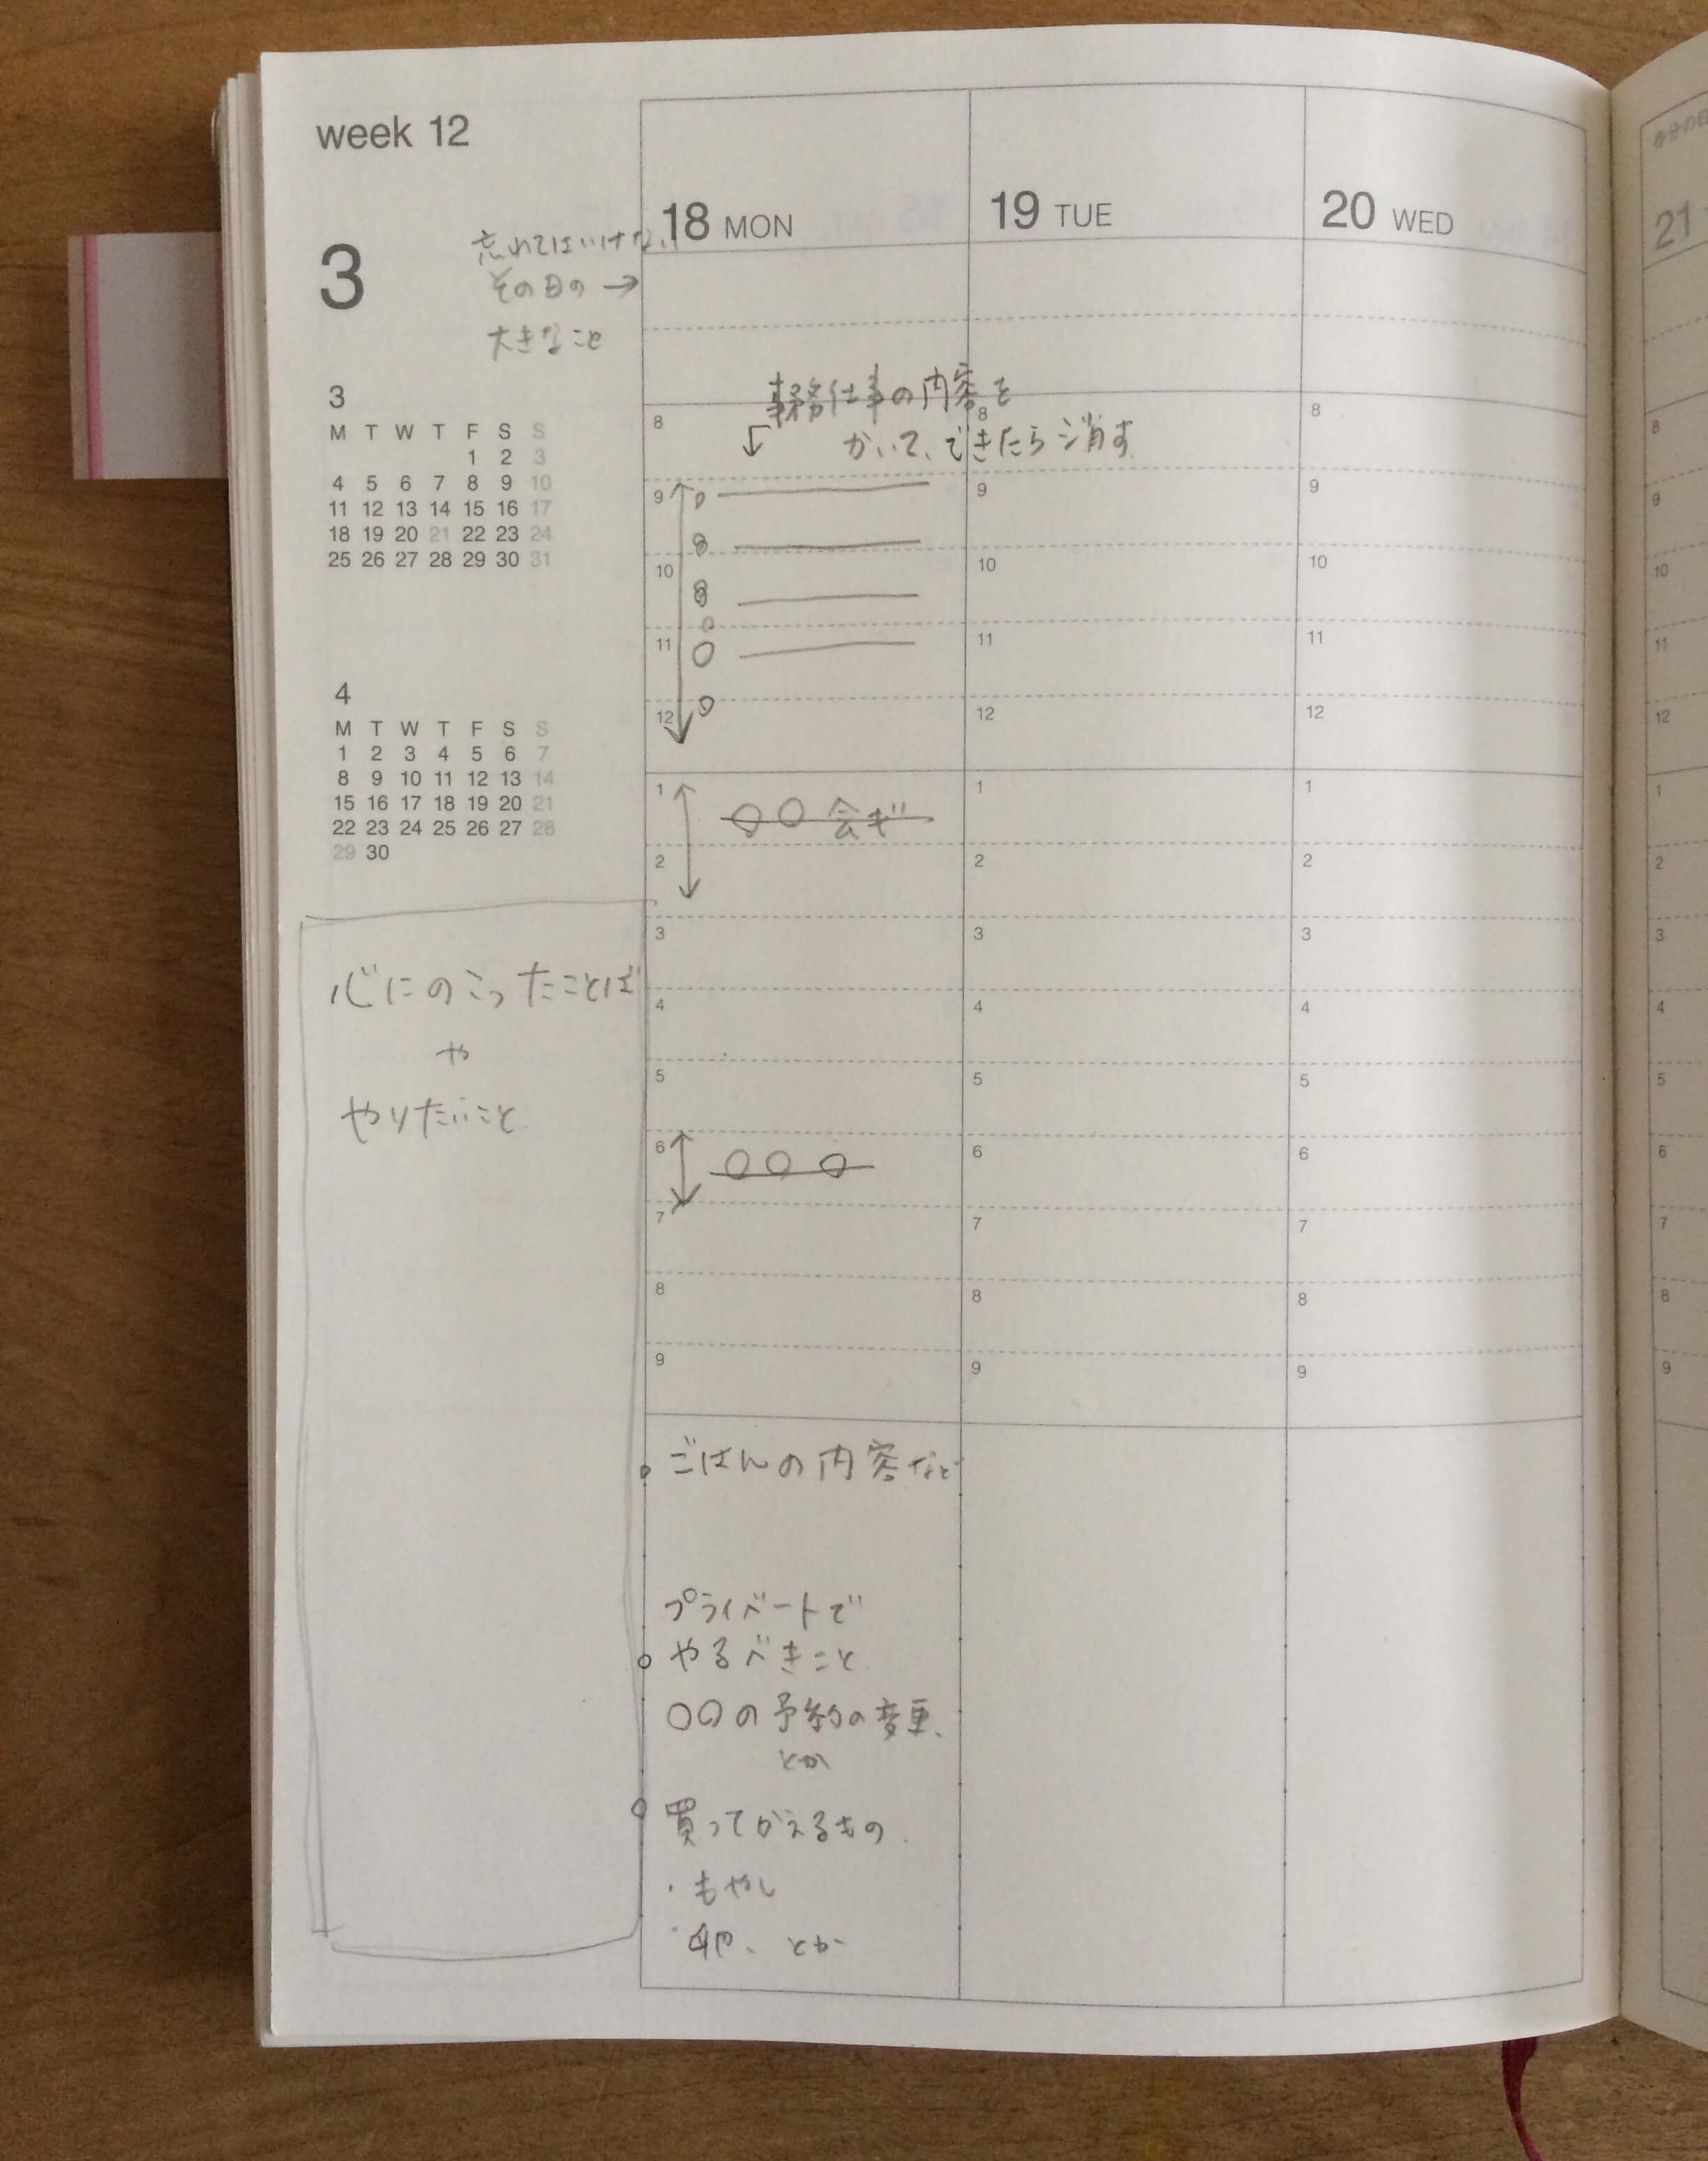 week 12
3
忘れてはいけない
その日の →
大きなこと
3
M T W T F S S
1 2 3
4 5 6 7 8 9 10
11 12 13 14 15 16 17
18 19 20 21 22 23 24
25 26 27 28 29 30 31
4
M T W T F S S
1 2 3 4 5 6 7
8 9 10 11 12 13 14
15 16 17 18 19 20 21
22 23 24 25 26 27 28
29 30
心にのこったことば
や
やりたいこと
18 MON
事務仕事の内容を
かいて、できたら消す
8
9
10
11
12
1
○○会ぎ
2
3
4
5
6
○○○
7
8
9
ごはんの内容など
プライベートで
やるべきこと
○○の予約の変更、
とか
買ってかえるもの
・もやし
・卵、とか
19 TUE
8
9
10
11
12
1
2
3
4
5
6
7
8
9
20 WED
8
9
10
11
12
1
2
3
4
5
6
7
8
9
春分の日
21
8
9
10
11
12
1
2
3
4
5
6
7
8
9